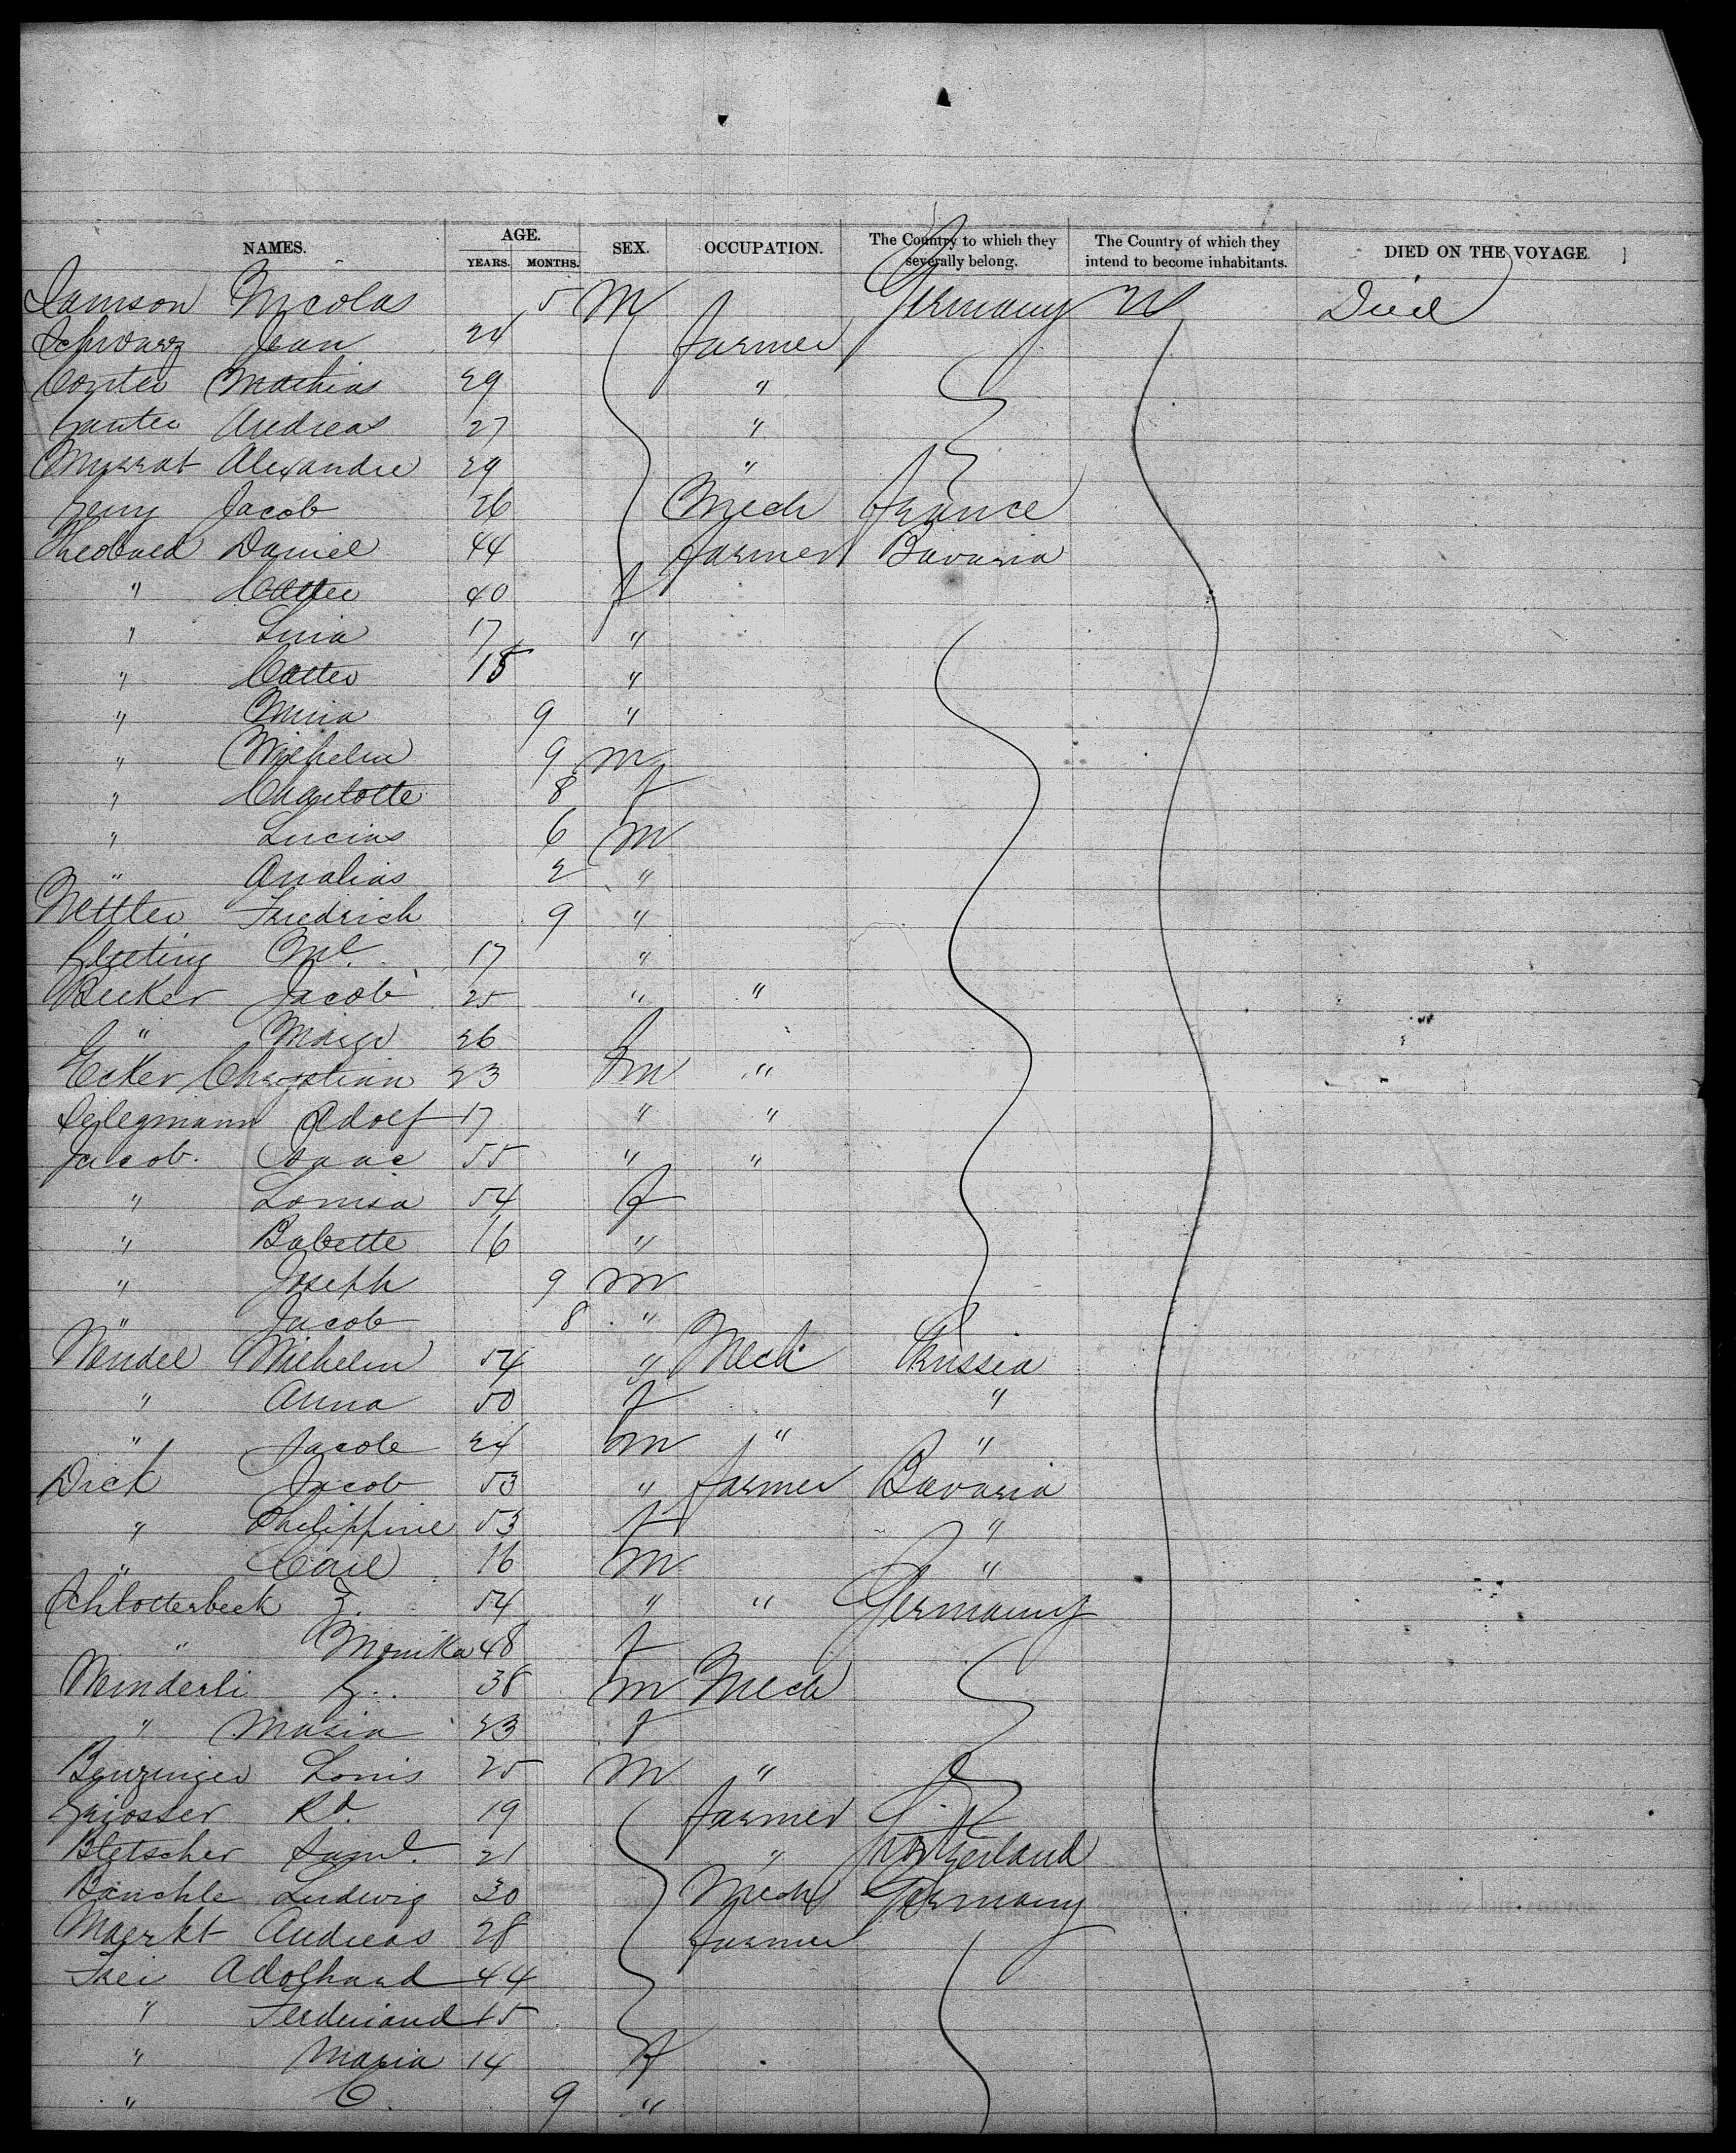 NAMES. AGE. SEX. OCCUPATION. The Country to which they severally belong. The Country of which they intend to become inhabitants. DIED ON THE VOYAGE
YEARS. MONTHS.
Damson Nicolas 5 M Germany US Died
Schwarz Jean 24 farmer
Conter Mathias 29 "
Ganter Andreas 27 "
Musrat Alexandre 29 "
Geny Jacob 26 Mech France
Theobald Daniel 44 farmer Bavaria
" Catter 40 f
" Luia 17 "
" Catter 15 "
" Miria 9 "
" Wilhelm 9 m
" Charlotte 8 f
" Lucius 6 m
" Analias 2 "
Nettler Friedrich 9 "
17 "
Becker Jacob 25 " "
" Margr 26 f
Ecker Chrystian 23 m "
Seylegmann Adolf 17 " "
Jacob. Isaac 55 " "
" Louisa 54 f
" Babette 16 "
" Joseph 9 m
" Jacob 8 "
Wendel Wilhelm 54 " Mech Prussia
" Anna 50 f "
" Jacob 24 m " "
Dick Jacob 53 " farmer Bavaria
" Philippine 53 f "
" Carl 16 m "
Schlotterbeck Z. 54 " " Germany
" Monika 48 f
Wenderli G. 38 m Mech
" Maria 23 f
Benzinger Louis 25 m "
Grosser Rd. 19 farmer
Bletscher Saml. 21 " Switzerland
Bauchle Ludwig 30 Mech Germany
Maerkt Andreas 28 farmer
Frei Adolhard 44
" Ferdinand 15
" Maria 14 f
" C. 9 "